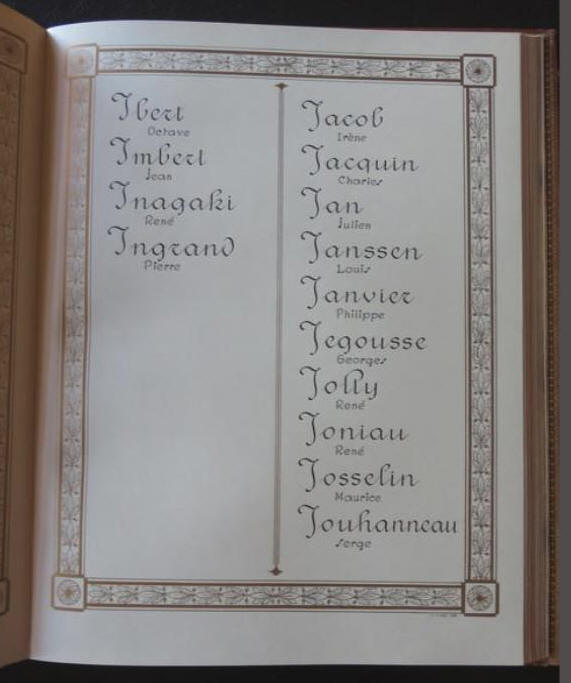 Ibert
Octave
Imbert
Jean
Inagaki
René
Ingrand
Pierre
Jacob
Irène
Jacquin
Charles
Jan
Julien
Janssen
Louis
Janvier
Philippe
Jegousse
Georges
Jolly
René
Joniau
René
Josselin
Maurice
Jouhanneau
Serge